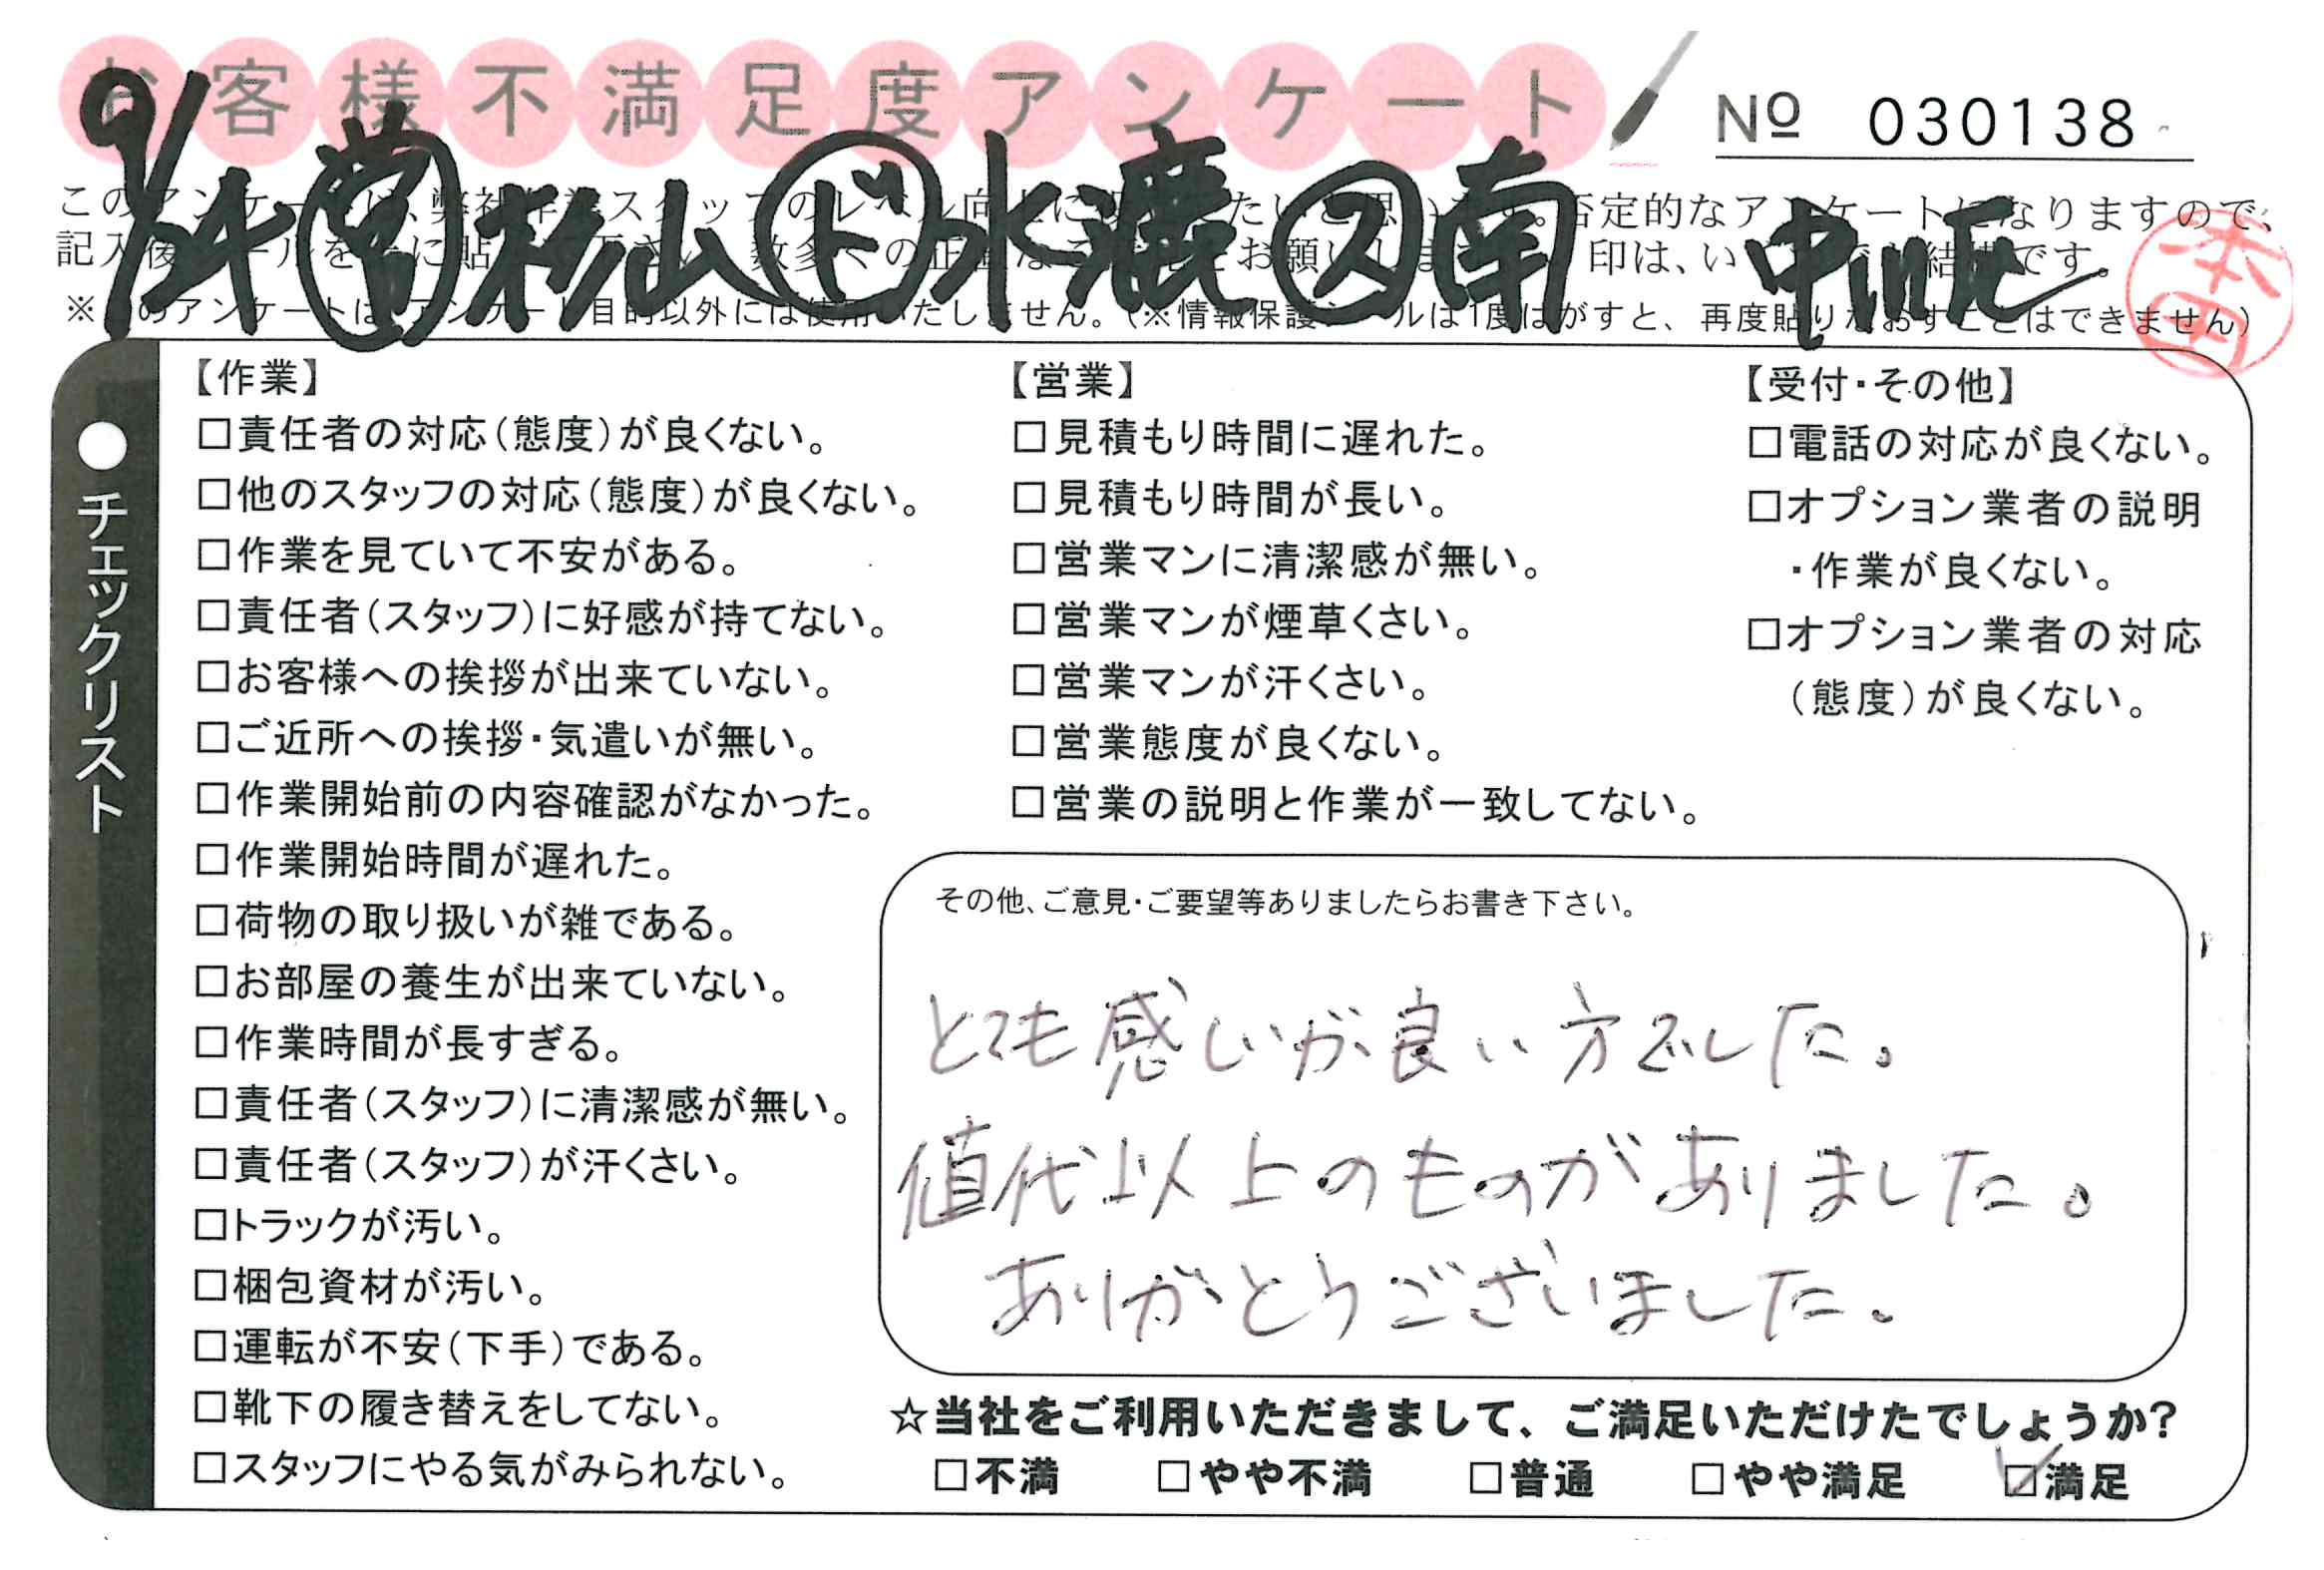 お客様不満足度アンケート
№ 030138
9/24 営 杉山 ド 水漉 ス 南 中山店
このアンケートは、弊社作業スタッフのレベル向上に たいと思います。否定的なアンケートになりますので、
記入後シールを に貼って下さい。数多くの正直なご をお願いします。 印は、いくつでも結構です。
本田
※このアンケートは、アンケート目的以外には使用いたしません。(※情報保護シールは1度はがすと、再度貼りなおすことはできません)
●チェックリスト
【作業】
□責任者の対応(態度)が良くない。
□他のスタッフの対応(態度)が良くない。
□作業を見ていて不安がある。
□責任者(スタッフ)に好感が持てない。
□お客様への挨拶が出来ていない。
□ご近所への挨拶・気遣いが無い。
□作業開始前の内容確認がなかった。
□作業開始時間が遅れた。
□荷物の取り扱いが雑である。
□お部屋の養生が出来ていない。
□作業時間が長すぎる。
□責任者(スタッフ)に清潔感が無い。
□責任者(スタッフ)が汗くさい。
□トラックが汚い。
□梱包資材が汚い。
□運転が不安(下手)である。
□靴下の履き替えをしてない。
□スタッフにやる気がみられない。
【営業】
□見積もり時間に遅れた。
□見積もり時間が長い。
□営業マンに清潔感が無い。
□営業マンが煙草くさい。
□営業マンが汗くさい。
□営業態度が良くない。
□営業の説明と作業が一致してない。
【受付・その他】
□電話の対応が良くない。
□オプション業者の説明
・作業が良くない。
□オプション業者の対応
(態度)が良くない。
その他、ご意見・ご要望等ありましたらお書き下さい。
とても感じが良い方でした。
値代以上のものがありました。
ありがとうございました。
☆当社をご利用いただきまして、ご満足いただけたでしょうか?
□不満 □やや不満 □普通 □やや満足 ☑満足